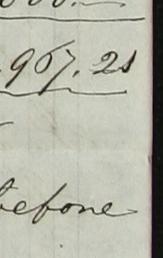 967.21
before